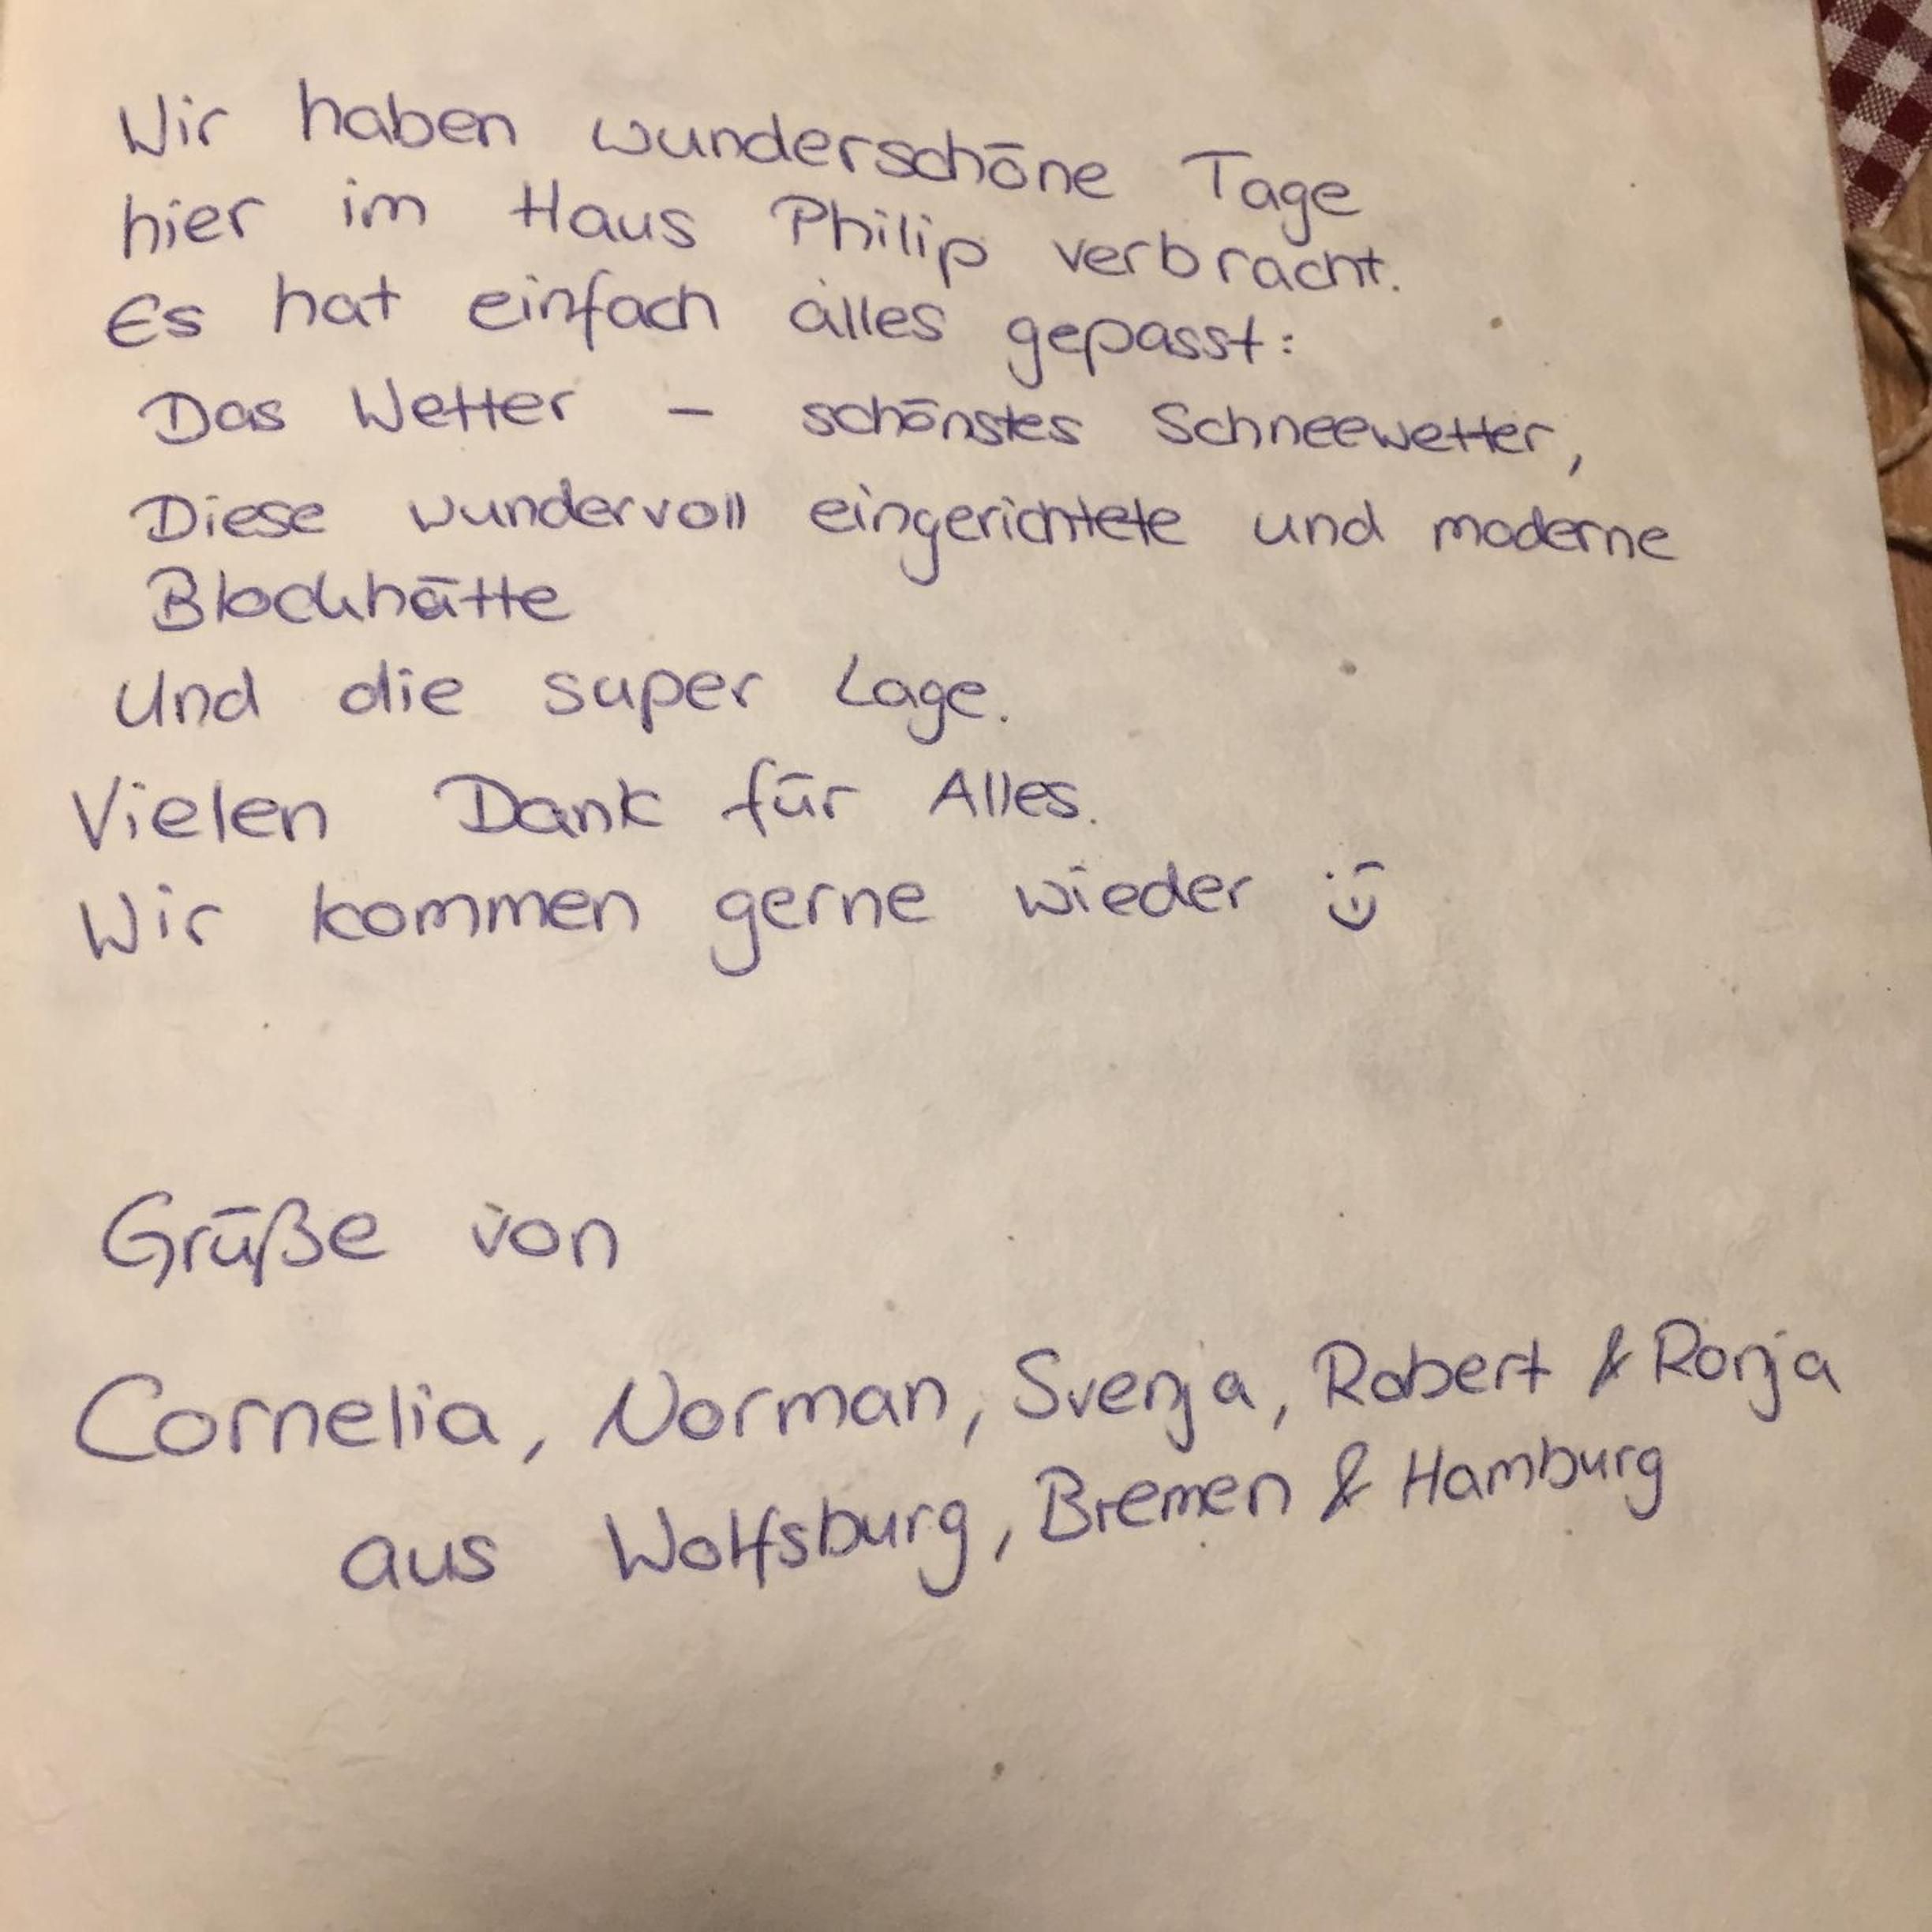 Wir haben wunderschöne Tage
hier im Haus Philip verbracht.
Es hat einfach alles gepasst:
Das Wetter – schönstes Schneewetter,
Diese wundervoll eingerichtete und moderne
Blockhütte
Und die super Lage.
Vielen Dank für Alles.
Wir kommen gerne wieder :)
Grüße von
Cornelia, Norman, Svenja, Robert & Ronja
aus Wolfsburg, Bremen & Hamburg